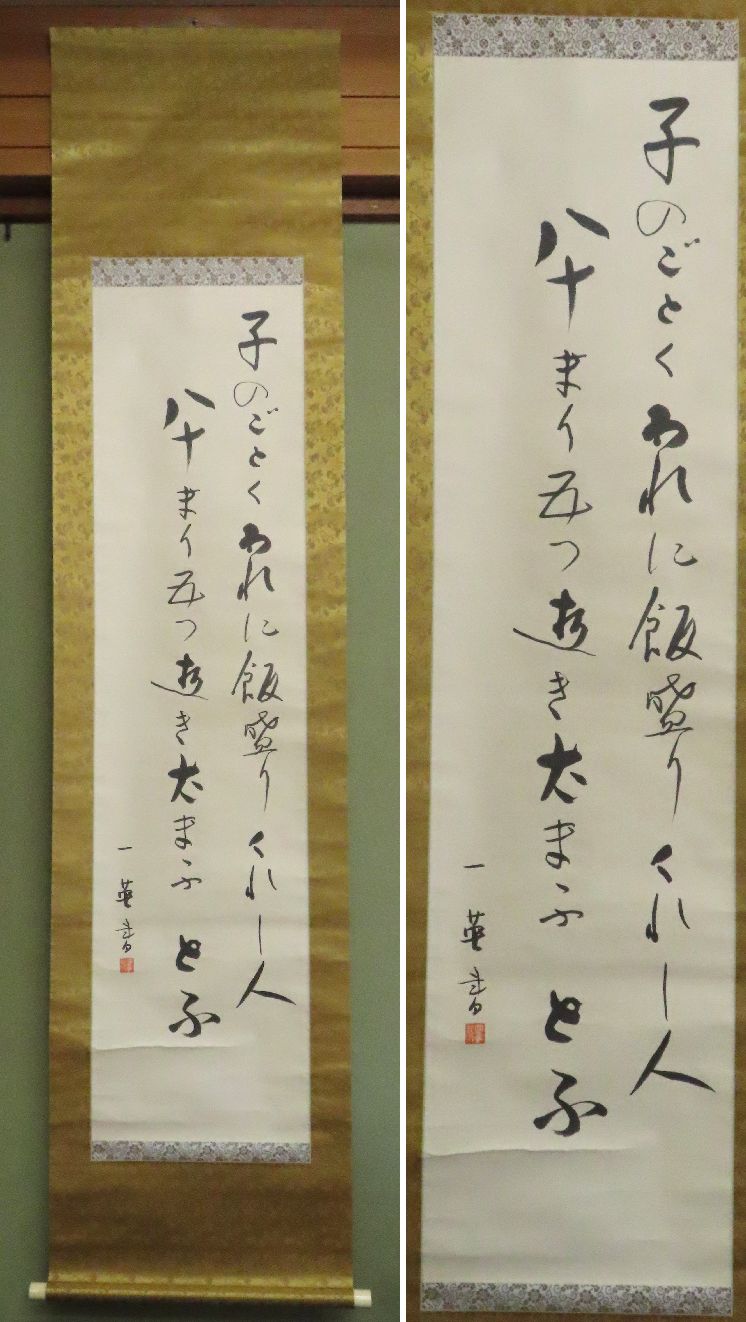 子のごとくわれに飯盛りくれし人
八十まり五つ逝き太まふとふ
一英書
子のごとくわれに飯盛りくれし人
八十まり五つ逝き太まふとふ
一英書